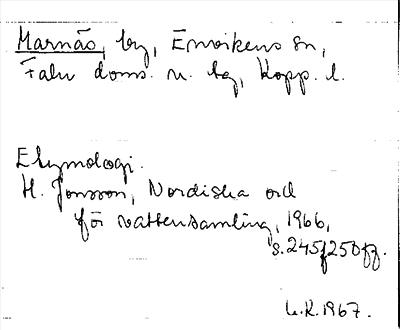 Marnäs, by, Envikens sn,
Falu doms. n. tg, Kopp. l.
Etymologi.
H. Jonsson, Nordiska ord
för vattensamling, 1966,
s. 245f, 250ff.
U.K. 1967.